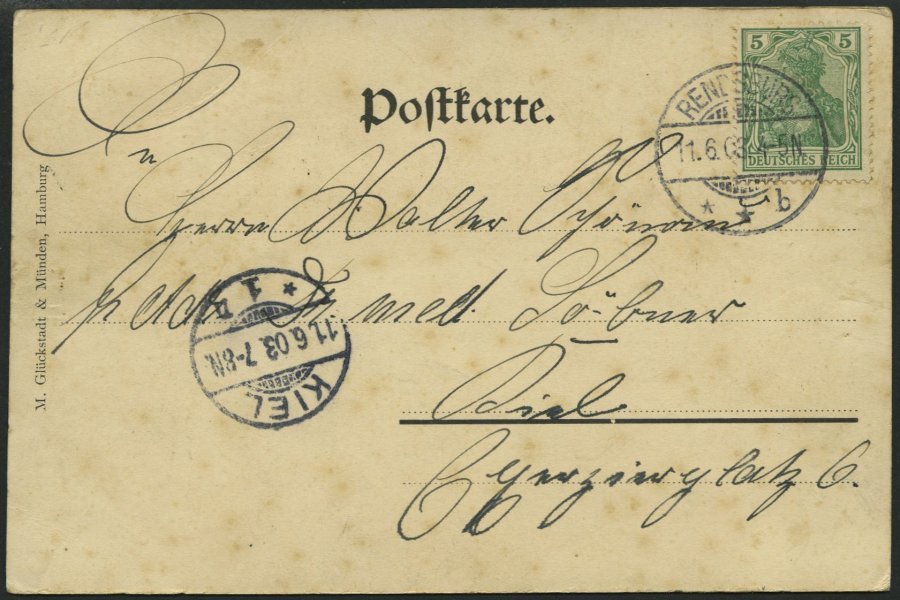 Postkarte.
5 5
DEUTSCHES REICH
RENDSBURG
11.6.03 4-5N
* * b
An
Herrn Walter
p. adr. Dr. med.
Kiel
Exerzierplatz 6.
KIEL
11.6.03. 7-8N.
* 1
M. Glückstadt & Münden, Hamburg